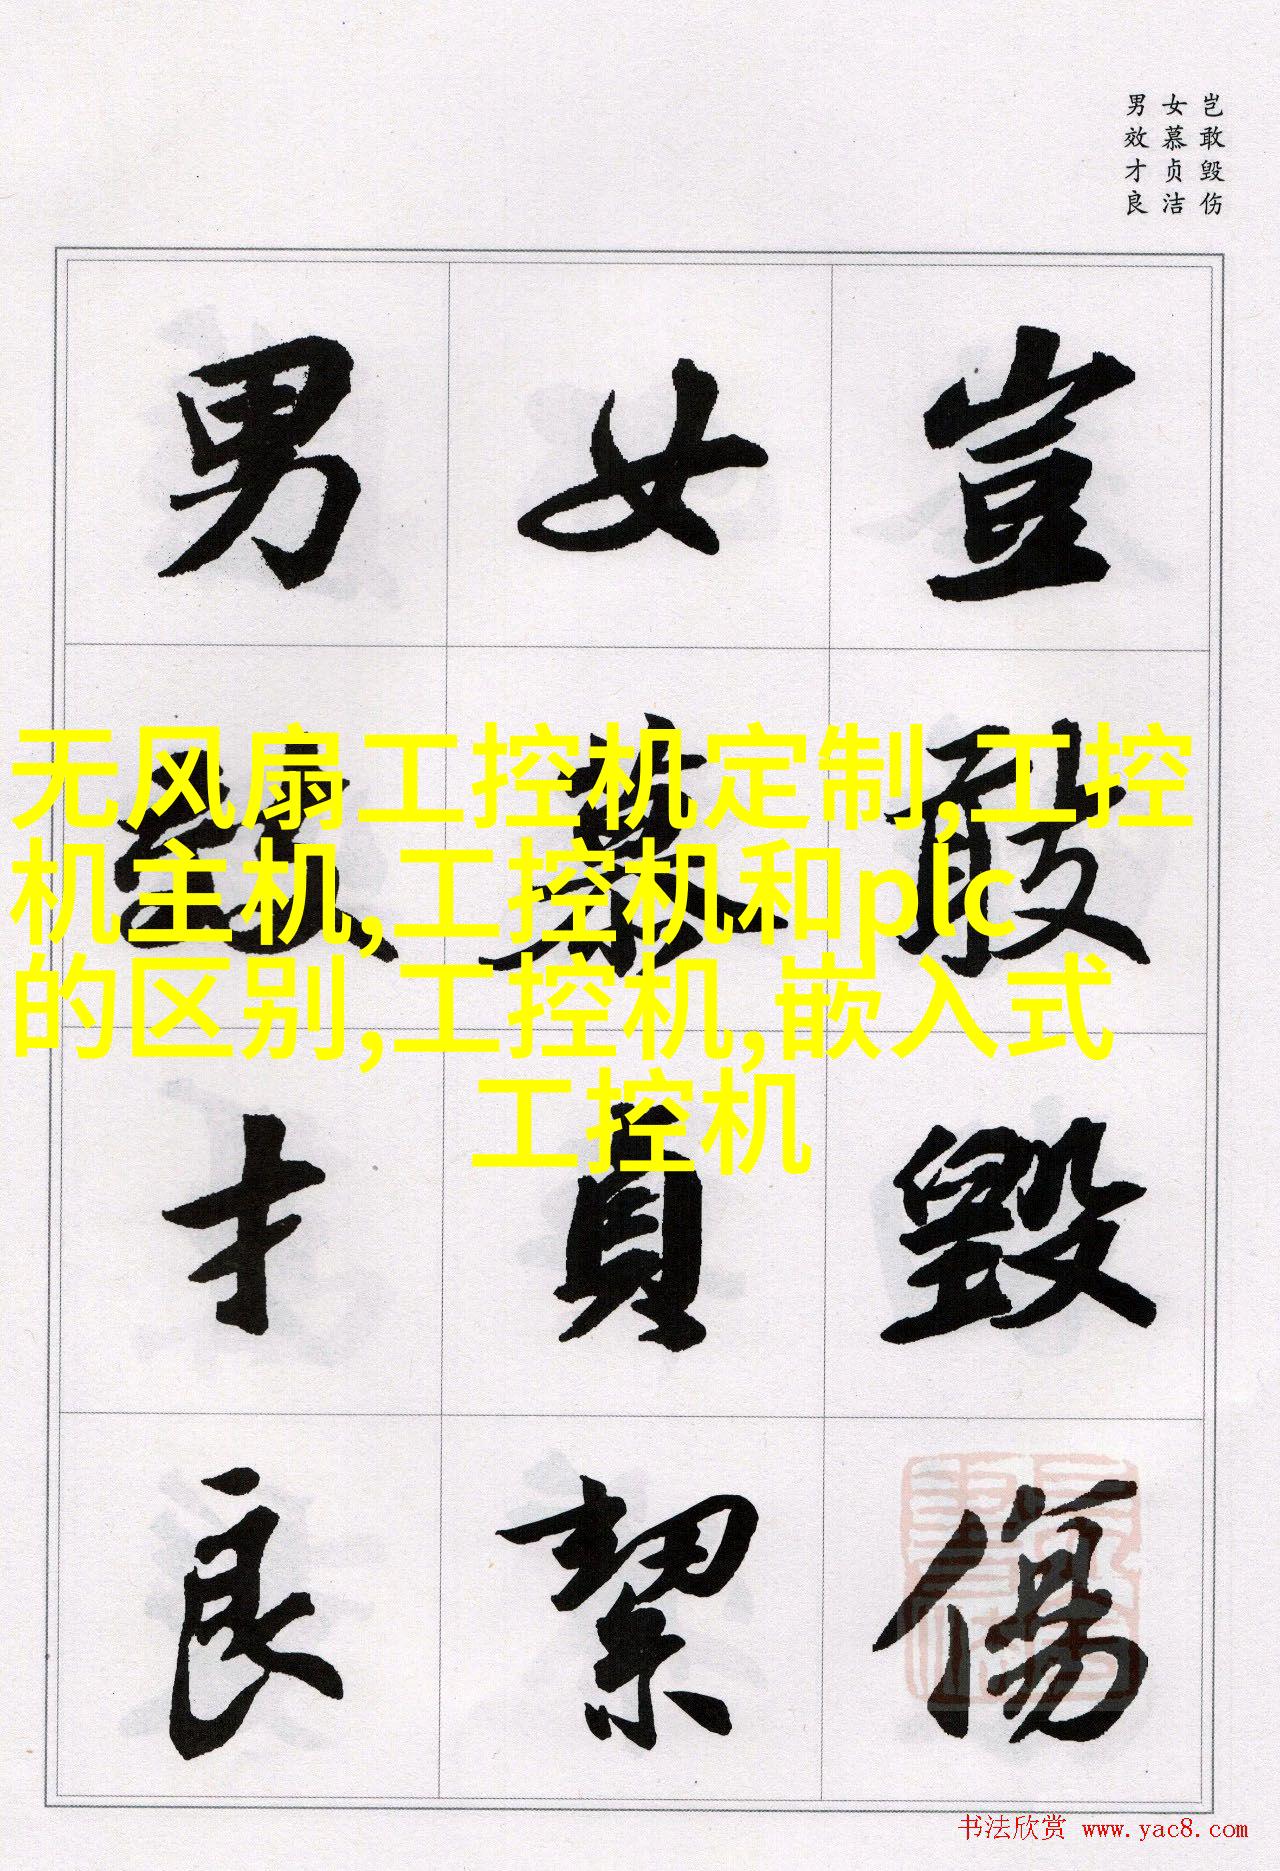 岂敢毁伤
女慕贞洁
男效才良
豈敢毀傷
女慕貞絜
男效才良
无风扇工控机定制,工控
机主机,工控机和plc
的区别,工控机,嵌入式
工控机
书法欣赏 www.yac8.com